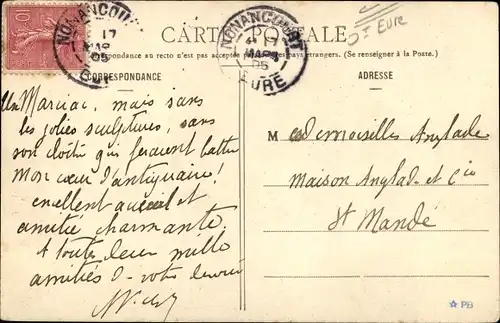 NONANCOURT
17
MARS
05
EURE
NONANCOURT
MARS
05
EURE
10
CARTE POSTALE
Dt Eure
correspondance au recto n'est pas acceptée par pays étrangers. (Se renseigner à la Poste.)
CORRESPONDANCE
ADRESSE
Un Marciac, mais sans
les jolies sculptures, sans
son cloître qui feraient battre
mon cœur d'antiquaire!
excellent accueil et
amitié charmante
A toutes deux mille
amitiés
M esdemoiselles Anglade
Maison Anglade et Cie
St Mandé
PB